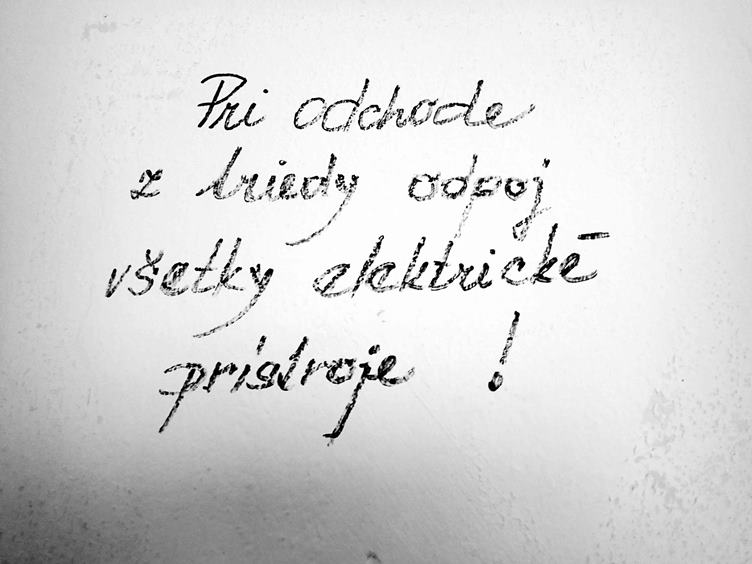 Pri odchode
z triedy odpoj
všetky elektrické
prístroje !